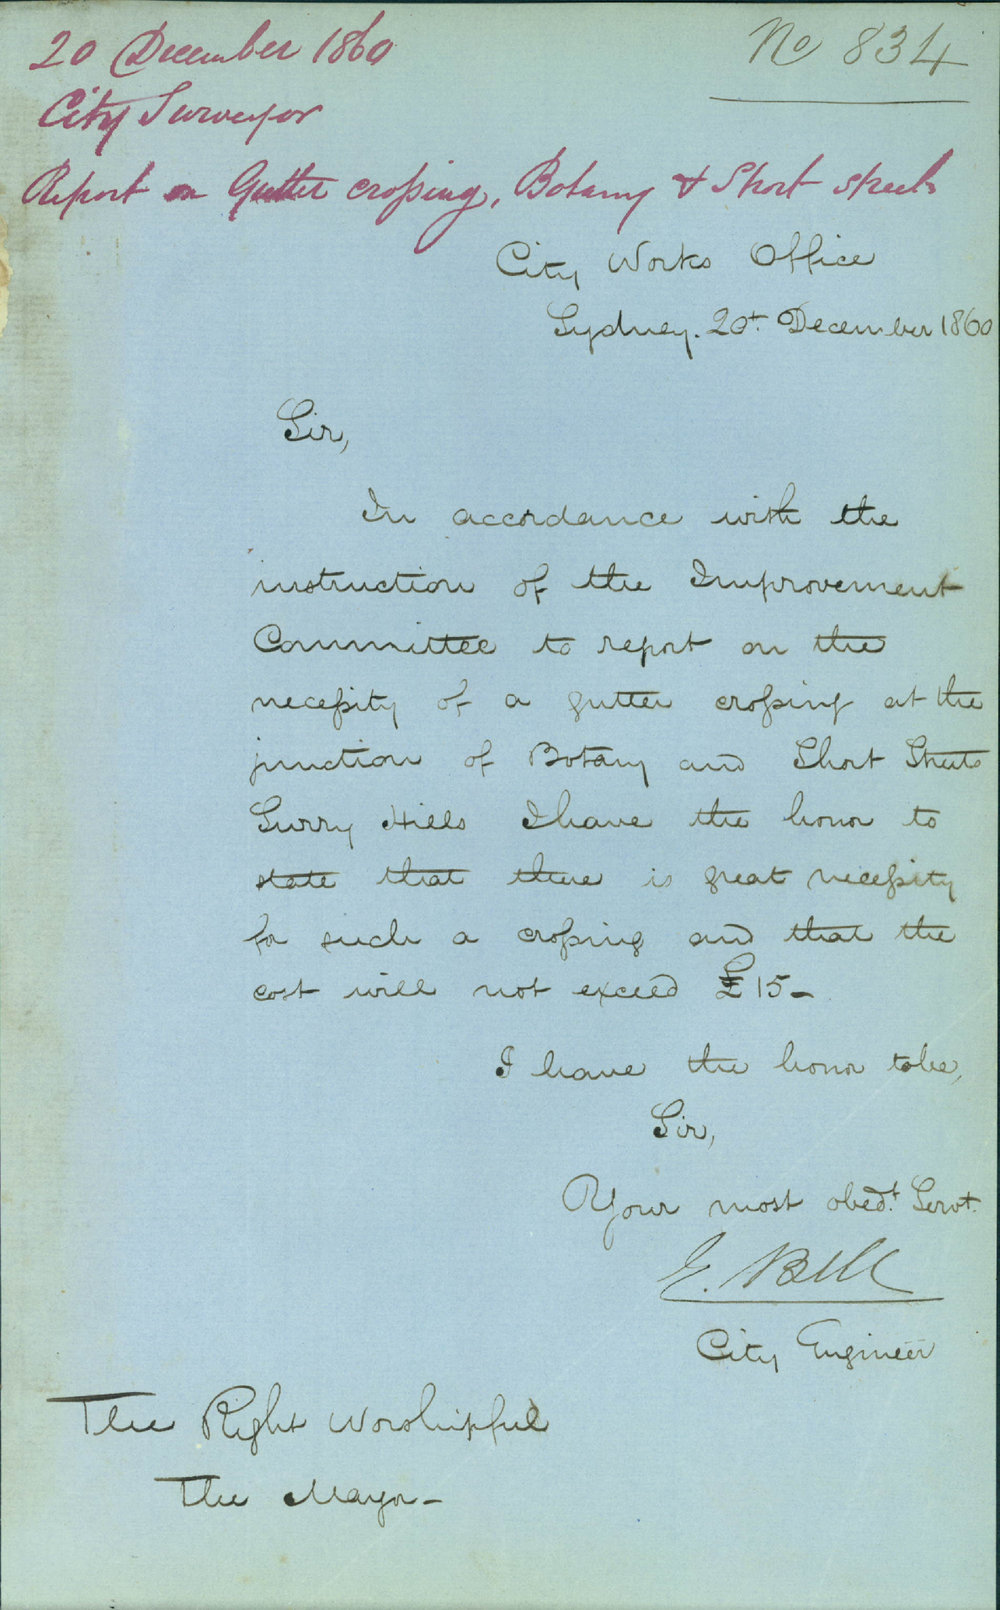 20 December 1860
No 834
City Surveyor
Report on Gutter croſsing, Botany & Short streets
City Works Office
Sydney. 20t. December 1860
Sir,
In accordance with the
instruction of the Improvement
Committee to report on the
neceſsity of a gutter croſsing at the
junction of Botany and Short Streets
Surry Hills I have the honor to
state that there is great neceſsity
for such a croſsing and that the
cost will not exceed £15-
I have the honor to be,
Sir,
Your most obedt. Servt.
E. Bell
City Engineer
The Right Worshipful
The Mayor-